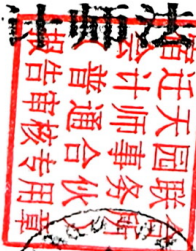 宿迁天园联合
会计师事务所
(普通合伙)
报告审核专用章